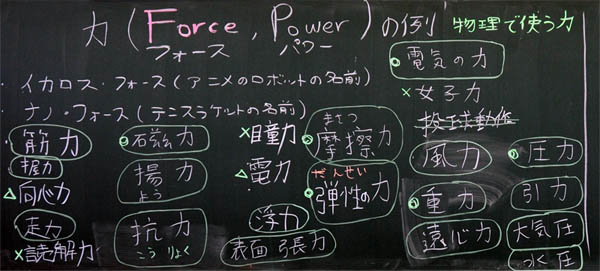 力(Force, Power)の例 物理で使う力
フォース パワー
・イカロス・フォース(アニメのロボットの名前)
・ナノ・フォース(テニスラケットの名前)
◎電気の力
×女子力
投球動作
筋力
握力
△向心力
走力
×読解力
◎磁力
揚力
よう
抗力
こうりょく
×自動力
△電力
浮力
表面張力
まさつ
◎摩擦力
だんせい
◎弾性の力
風力
◎重力
遠心力
◎圧力
引力
大気圧